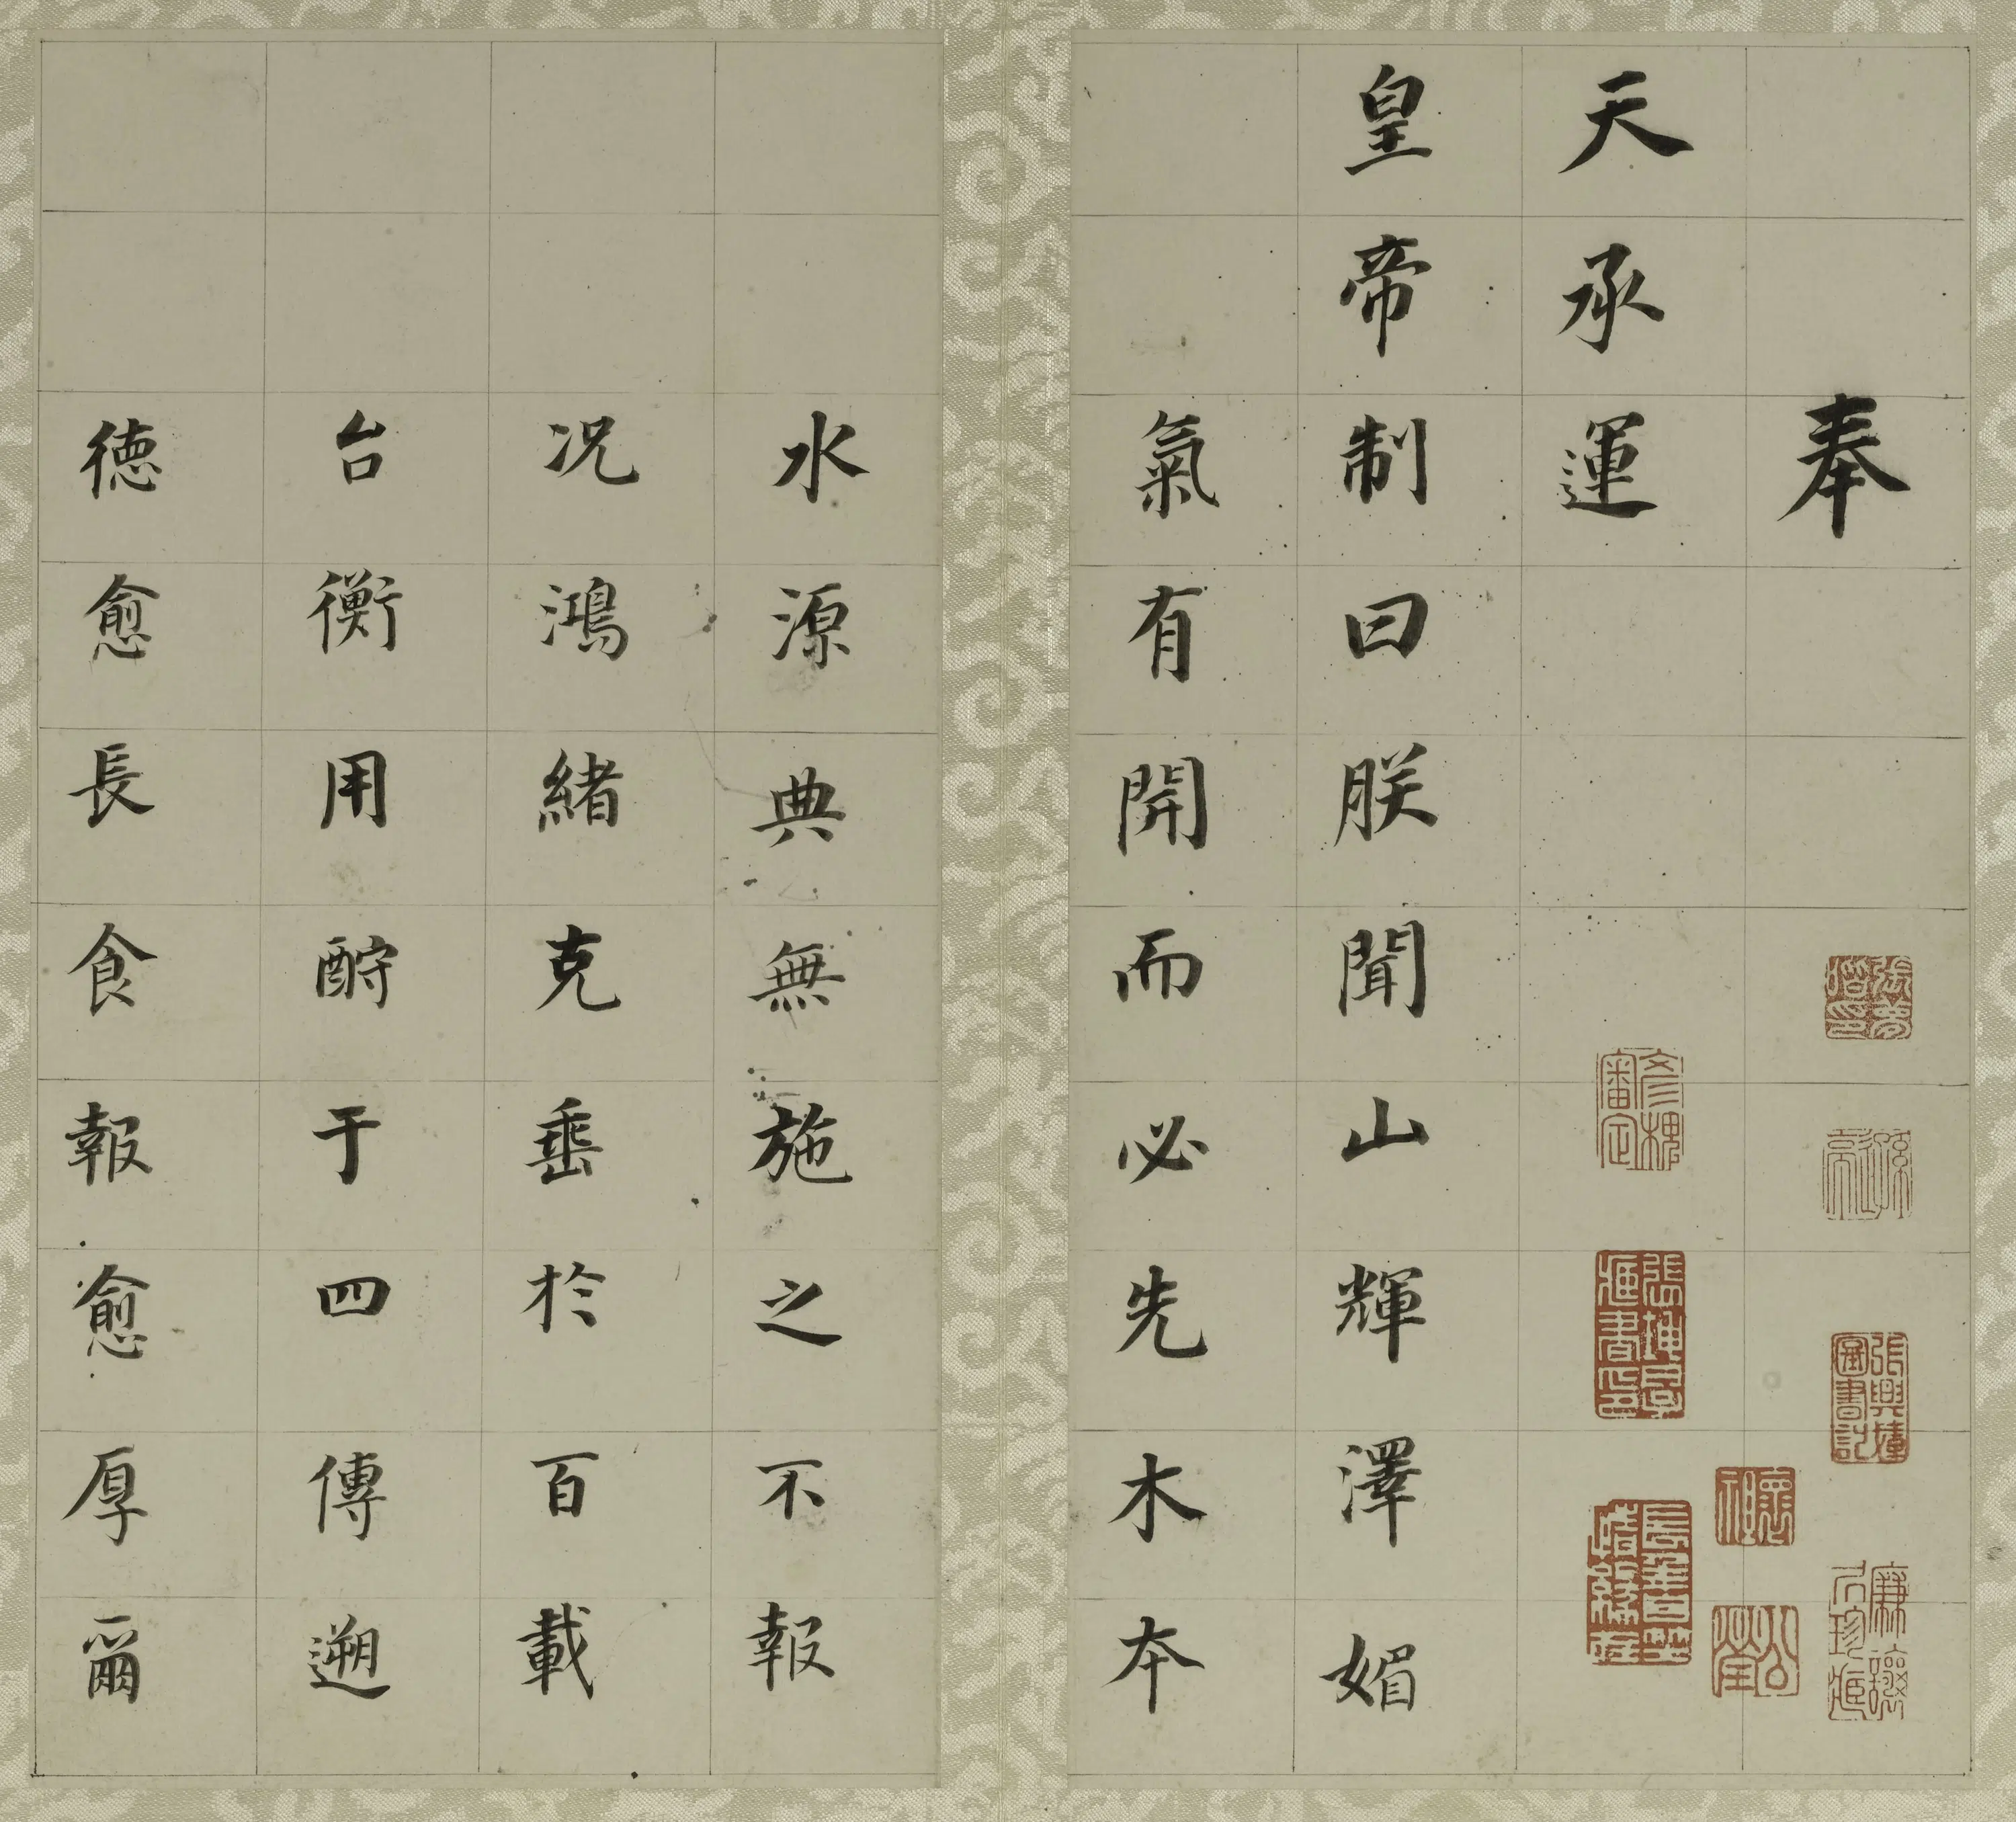 奉
天承運
皇帝制曰朕聞山輝澤媚
氣有開而必先木本
水源典無施之不報
況鴻緒克垂於百載
台衡用酹于四傳遡
德愈長食報愈厚爾